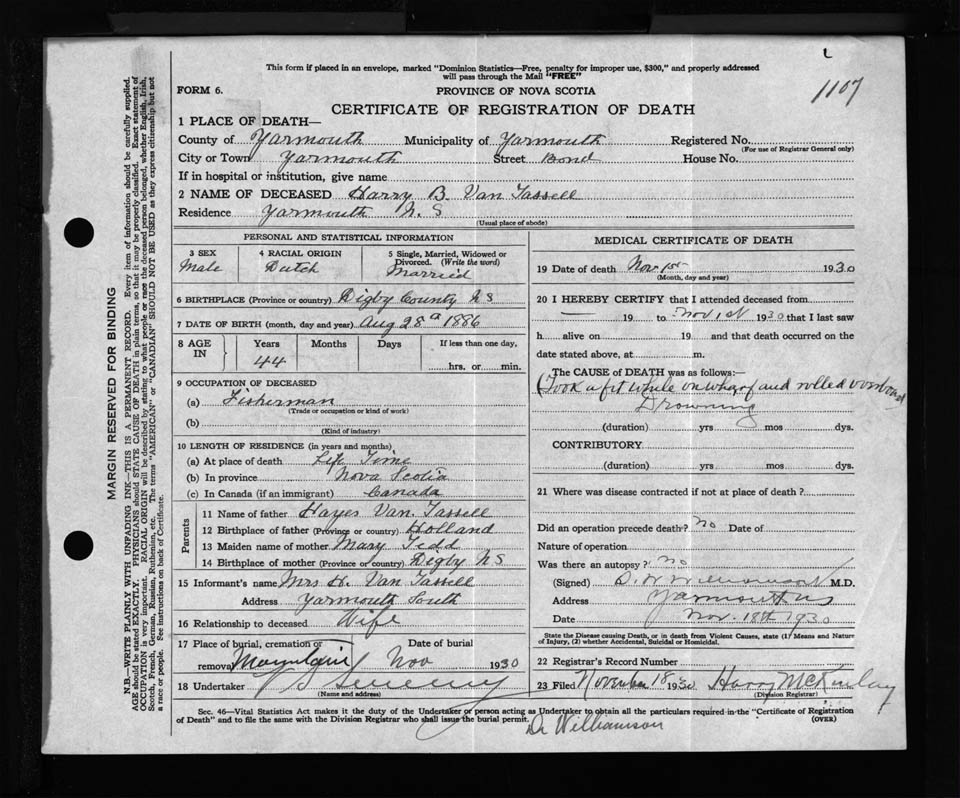 1107
This form if placed in an envelope, marked "Dominion Statistics—Free, penalty for improper use, $300," and properly addressed
will pass through the Mail "FREE"
FORM 6.
PROVINCE OF NOVA SCOTIA
CERTIFICATE OF REGISTRATION OF DEATH
1 PLACE OF DEATH—
County of Yarmouth Municipality of Yarmouth Registered No.
(For use of Registrar General only)
City or Town Yarmouth Street Bond House No.
If in hospital or institution, give name
2 NAME OF DECEASED Harry B. Van Tassell
Residence Yarmouth N.S
(Usual place of abode)
PERSONAL AND STATISTICAL INFORMATION
3 SEX Male
4 RACIAL ORIGIN Dutch
5 Single, Married, Widowed or Divorced. (Write the word) Married
6 BIRTHPLACE (Province or country) Digby County N S
7 DATE OF BIRTH (month, day and year) Aug 28 1886
8 AGE IN Years Months Days If less than one day,
44 hrs. or min.
9 OCCUPATION OF DECEASED
(a) Fisherman
(Trade or occupation or kind of work)
(b)
(Kind of industry)
10 LENGTH OF RESIDENCE (in years and months)
(a) At place of death Life Time
(b) In province Nova Scotia
(c) In Canada (if an immigrant) Canada
Parents
11 Name of father Hayes Van. Tassell
12 Birthplace of father (Province or country) Holland
13 Maiden name of mother Mary Tedd
14 Birthplace of mother (Province or country) Digby N S
15 Informant's name Mrs H. Van Tassell
Address Yarmouth South
16 Relationship to deceased Wife
17 Place of burial, cremation or Date of burial
removal Nov 1930
18 Undertaker
(Name and address)
MEDICAL CERTIFICATE OF DEATH
19 Date of death Nov 1930
(Month, day and year)
20 I HEREBY CERTIFY that I attended deceased from
— 19 to Nov 1st 1930 that I last saw
h alive on 19 and that death occurred on the
date stated above, at m.
The CAUSE of DEATH was as follows:—
(Took a fit while on wharf and rolled overboard
Drowning
(duration) yrs mos dys.
CONTRIBUTORY
(duration) yrs mos dys.
21 Where was disease contracted if not at place of death?
Did an operation precede death? No Date of
Nature of operation
Was there an autopsy? No
(Signed) D. W. Williamson M.D.
Address Yarmouth NS
Date Nov. 18th 1930
State the Disease causing Death, or in death from Violent Causes, state (1) Means and Nature
of Injury, (2) whether Accidental, Suicidal or Homicidal.
22 Registrar's Record Number
23 Filed November 18 1930 Harry McKinlay
(Division Registrar)
Sec. 46—Vital Statistics Act makes it the duty of the Undertaker or person acting as Undertaker to obtain all the particulars required in the "Certificate of Registration
of Death" and to file the same with the Division Registrar who shall issue the burial permit.
(OVER)
Dr Williamson
MARGIN RESERVED FOR BINDING
N.B.—WRITE PLAINLY WITH UNFADING INK—THIS IS A PERMANENT RECORD. Every item of information should be carefully supplied.
AGE should be stated EXACTLY. PHYSICIANS should STATE CAUSE OF DEATH in plain terms, so that it may be properly classified. Exact statement of
OCCUPATION is very important. RACIAL ORIGIN will be described by stating to what people or race the deceased person belonged, whether English, Irish,
Scotch, French, German, Russian, Ruthenian, etc. The terms "AMERICAN" or "CANADIAN" SHOULD NOT BE USED as they express citizenship but not
a race or people. See instructions on back of Certificate.